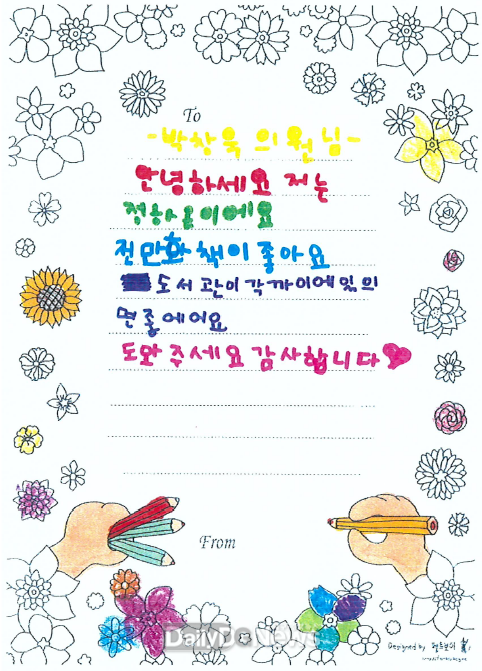 To
-박창욱 의원님-
안녕하세요 저는
정하율이에요
전 만화책이 좋아요
도서관이 각까이에 있의
면 좋에어요
도와주세요 감사합니다
From
Designed by
Daily News